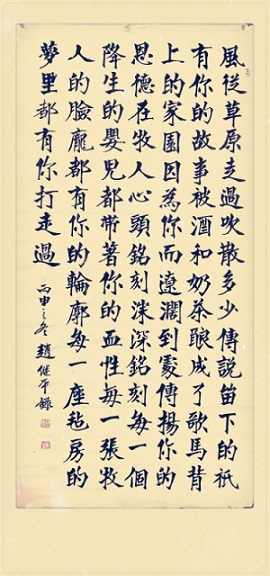 風從草原走過吹散多少傳說留下的祇
有你的故事被酒和奶茶釀成了歌馬背
上的家園因為你而遼闊到處傳揚你的
恩德在牧人心頭銘刻深深銘刻每一個
降生的嬰兒都帶著你的血性每一張牧
人的臉龐都有你的輪廓每一座毡房的
夢里都有你打走過
丙申之冬趙继平錄